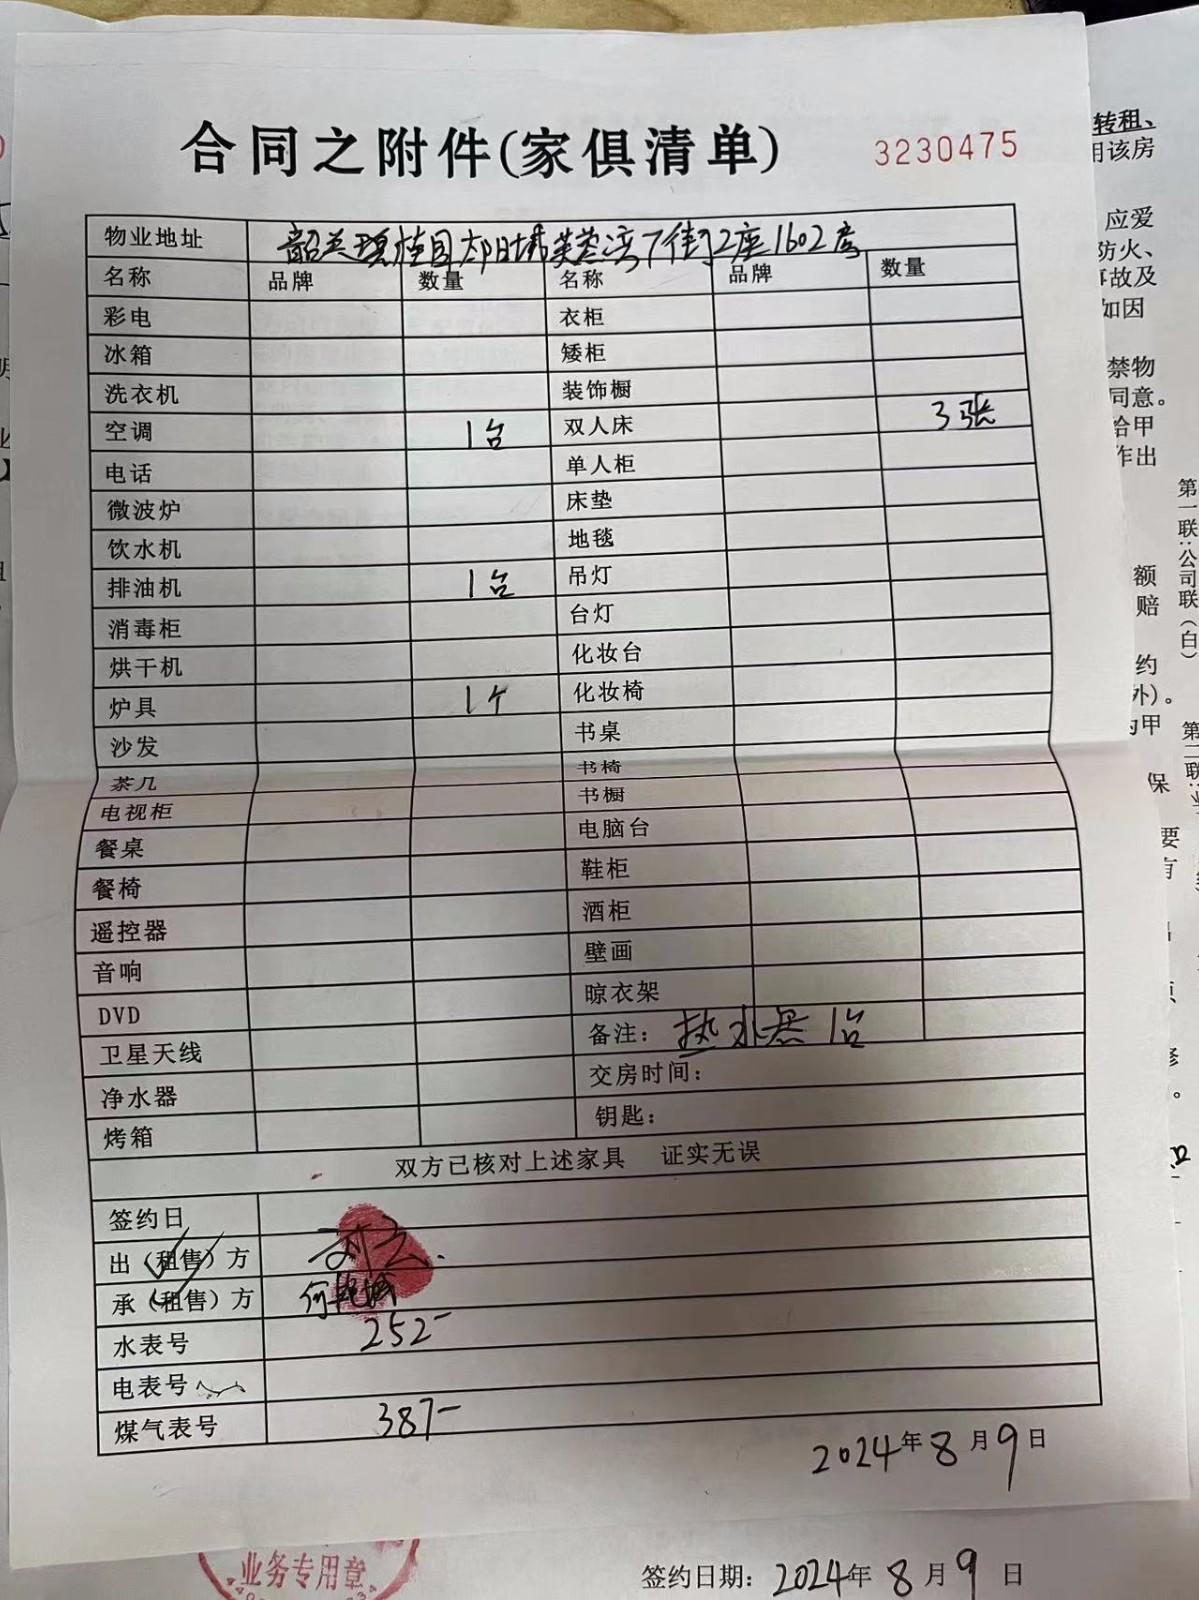 合同之附件(家俱清单) 3230475
物业地址 韶关碧桂园太阳城芙蓉湾7街2座1602房
名称 品牌 数量 名称 品牌 数量
彩电 衣柜
冰箱 矮柜
洗衣机 装饰橱
空调 1台 双人床 3张
电话 单人柜
微波炉 床垫
饮水机 地毯
排油机 1台 吊灯
消毒柜 台灯
烘干机 化妆台
炉具 1个 化妆椅
沙发 书桌
茶几 书椅
电视柜 书橱
餐桌 电脑台
餐椅 鞋柜
遥控器 酒柜
音响 壁画
DVD 晾衣架
卫星天线 备注: 热水器1台
净水器 交房时间:
烤箱 钥匙:
双方已核对上述家具 证实无误
签约日
出(租售)方
承(租售)方
水表号 252
电表号
煤气表号 387
2024年8月9日
业务专用章
签约日期: 2024年8月9日
转租、
用该房
应爱
防火、
事故及
如因
禁物
同意。
给甲
作出
额
赔
约
外)。
甲
保
要
第一联:公司联(白)
第二联: